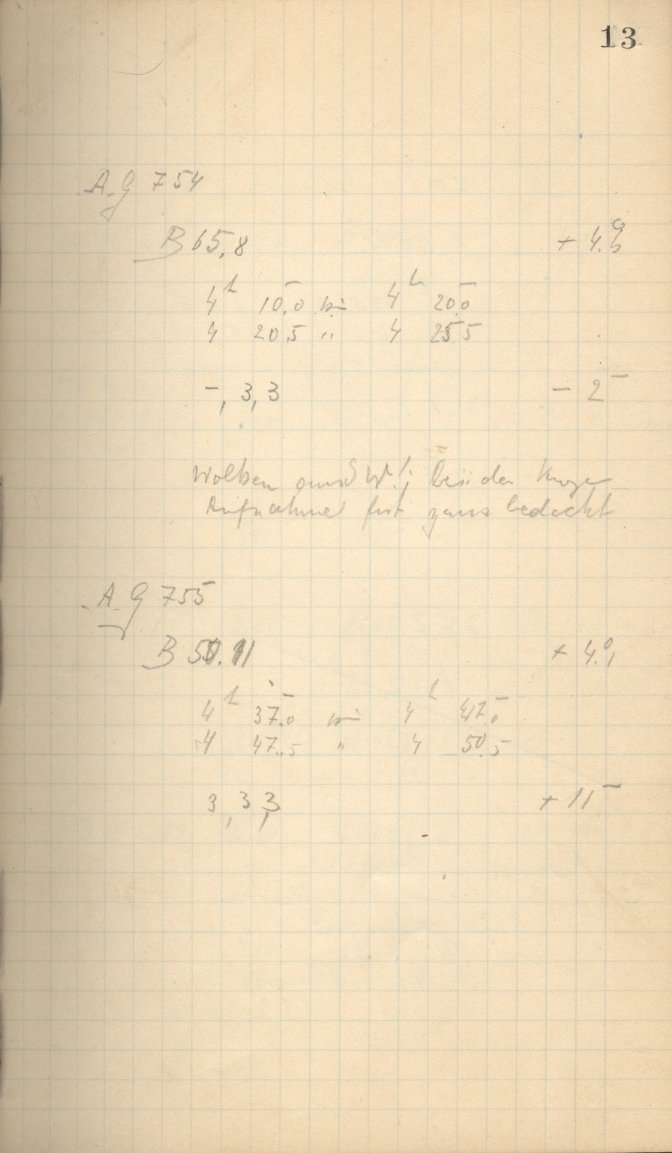 13
A.G 754
B 65,8 + 4.9
4h 10,0 bis 4h 20,0
4 20,5 " 4 25,5
–, 3, 3 – 2
Wolken bei der kurzen
Aufnahme fast ganz bedeckt
A.G 755
B 50.11 + 4.0
4h 37.0 bis 4h 47.0
4 47.5 " 4 50.5
3, 3, 3 + 11